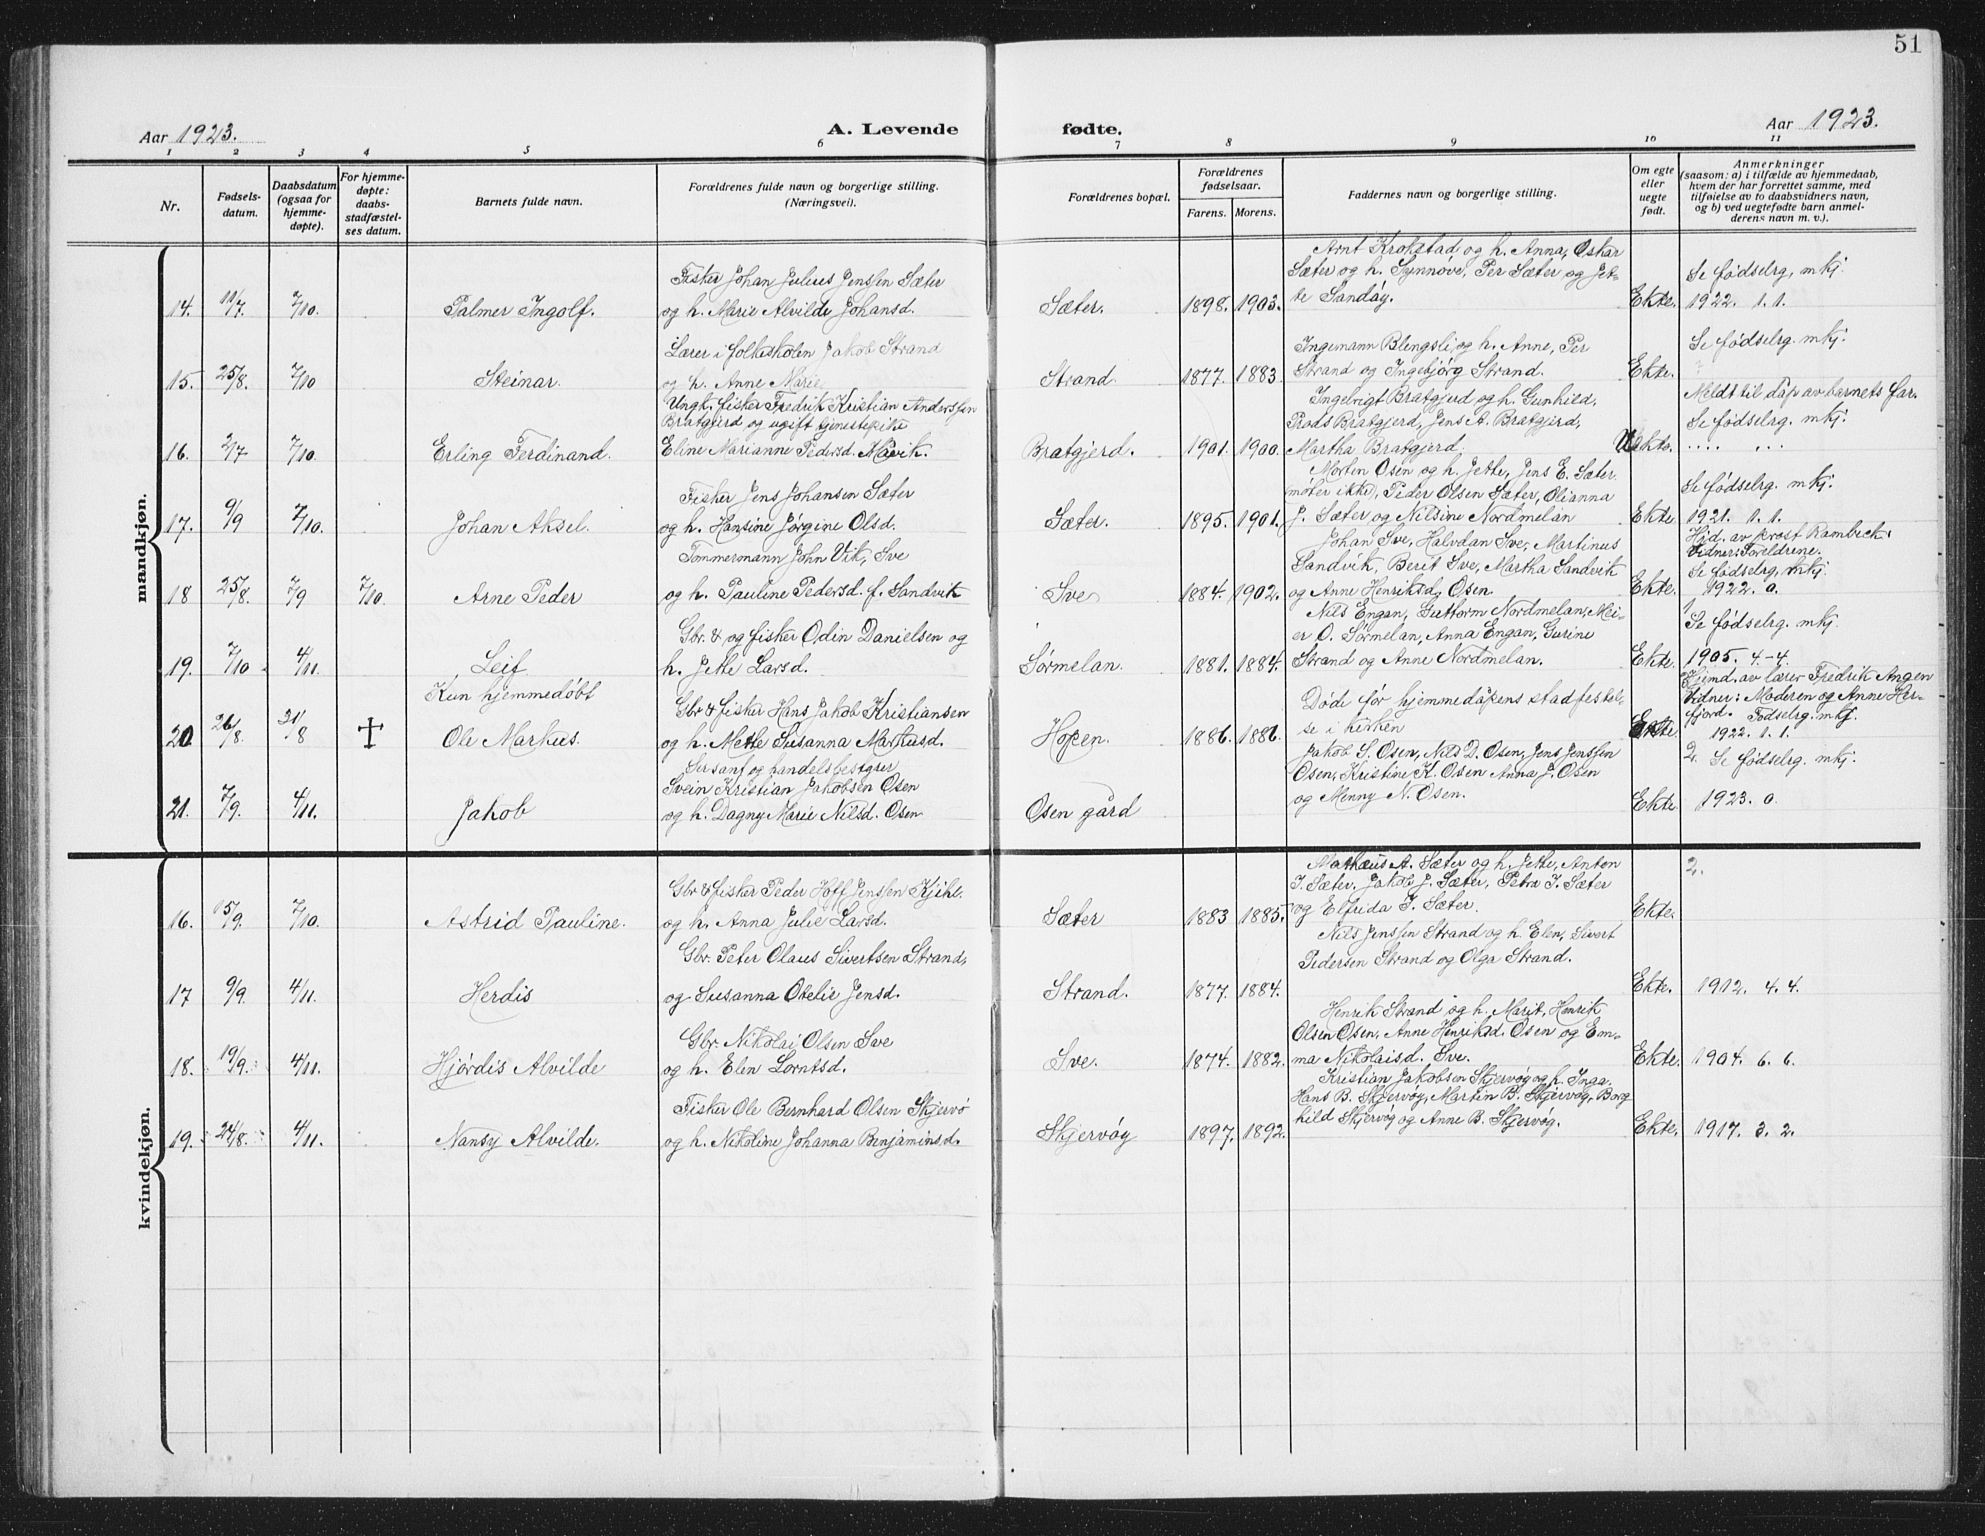 51
Aar 1923.
A. Levende
fødte.
Aar 1923.
1 2 3 4 5 6 7 8 9 10 11
Nr.
Fødsels-
datum.
Daabsdatum
(ogsaa for
hjemme-
døpte).
For hjemme-
døpte:
daabs-
stadfæstel-
ses datum.
Barnets fulde navn.
Forældrenes fulde navn og borgerlige stilling.
(Næringsvei).
Forældrenes bopæl.
Forældrenes
fødselsaar.
Farens. Morens.
Faddernes navn og borgerlige stilling.
Om egte
eller
uegte
født.
Anmerkninger
(saasom: a) i tilfælde av hjemmedaab,
hvem der har forrettet samme, med
tilføielse av to daabsvidners navn,
og b) ved uegtefødte barn anmel-
derens navn m. v.).
mandkjøn.
14. 11/7 7/10. Palmer Ingolf.
Fisker Johan Julius Jenssen Sæter
og h. Marie Alvilde Johansd.
Sæter. 1898. 1903.
Arnt Krokstad og h. Anna, Oskar
Sæter og h. Synnøve, Per Sæter og Jet-
te Sandøy.
Ekte.
Se fødselrg. mkj.
1922. 1. 1.
15. 25/8. 7/10 Steinar.
Lærer i folkeskolen Jakob Strand
og h. Anne Marie
Strand. 1877. 1883.
Ingemann Blengsli og h. Anne, Per
Strand og Ingebjørg Strand.
Ekte.
Se fødselrg. mkj.
7
16. 2/7 7/10. Erling Ferdinand.
Ungk. fisker Fredrik Kristian Anderssen
Bratgjerd og ugift tjenestepike
Eline Marianne Pedersd. Høvik.
Bratgjerd. 1901. 1900.
Ingebrigt Bratgjerd og h. Gunhild,
Bratgjerd, Jens A. Bratgjerd,
Martha Bratgjerd.
Uekte.
Meldt til dåp av barnets far.
Se fødselrg. mkj.
17. 9/9 7/10. Johan Aksel.
Fisker Jens Johansen Sæter
og h. Hansine Jørgine Olsd.
Sæter. 1895. 1901.
Morten Osen og h. Jette, Jens E. Sæter
(møter ikke), Peder Olsen Sæter, Olianna
J. Sæter og Nilsine Nordmelan
Ekte.
Se fødselrg. mkj.
1921. 1. 1.
18 25/8. 7/9 7/10. Arne Peder
Tømmermann John Vik, Sve
og h. Pauline Pedersd. f. Sandvik
Sve 1884. 1902.
Johan Sve, Halvdan Sve, Martinus
Sandvik, Berit Sve, Martha Sandvik
og Anne Henriksd. Osen.
Ekte.
Hjd. av prost Rambech.
Vidner: Foreldrene.
Se fødselrg. mkj.
1922. 0.
19. 7/10 4/11. Leif
Gbr. & og fisker Odin Danielsen og
h. Jette Larsd.
Sørmelan. 1881. 1884.
Nils Engan, Guttorm Nordmelan, Mei-
er O. Sørmelan, Anna Engan, Gurine
Strand og Anne Nordmelan.
Ekte.
Se fødselrg. mkj.
1905. 4.-4.
20 26/8. 21/8 † Kun hjemmedøbt
Ole Markus.
Gbr & fisker Hans Jakob Kristiansen
og h. Mette Susanna Markusd.
Hopen. 1886. 1886.
Døde før hjemmedåpens stadfestel-
se i kirken
Ekte.
Hjemd. av lærer Fredrik Angen
Vidner: Moderen og Anne Her-
fjord. Fødselrg. mkj.
1922. 1. 1.
21. 7/9. 4/11. Jakob
Sersant og handelsbestyrer
Svein Kristian Jakobsen Osen
og h. Dagny Marie Nilsd. Osen
Osen gård
Jakob S. Osen, Nils D. Osen, Jens Jenssen
Osen, Kristine K. Osen Anna J. Osen
og Menny N. Osen.
Ekte.
2. Se fødselrg. mkj.
1923. 0.
kvindekjøn.
16. 15/9. 7/10. Astrid Pauline.
Gbr & fisker Peder Hoff Jenssen Kjihl
og h. Anna Julie Larsd.
Sæter 1883 1885.
Mathæus A. Sæter og h. Jette, Anton
J. Sæter, Jakob J. Sæter, Petra J. Sæter
og Elfrida J. Sæter.
Ekte.
2.
17 9/9. 4/11. Herdis
Gbr. Peter Olaus Sivertsen Strand,
og Susanna Otelie Jensd.
Strand. 1877. 1884.
Nils Jenssen Strand og h. Elen, Sivert
Pedersen Strand og Olga Strand.
Ekte. 1912. 4. 4.
18. 19/9. 4/11. Hjørdis Alvilde
Gbr. Nikolai Olsen Sve
og h. Elen Lorntsd.
Sve. 1874. 1882.
Henrik Strand og h. Marit, Henrik
Olsen Osen, Anne Henriksd. Osen og Em-
ma Nikolaisd. Sve.
Ekte. 1904. 6. 6.
19. 24/8. 4/11. Nansy Alvilde.
Fisker Ole Bernhard Olsen Skjervø
og h. Nikoline Johanna Benjaminsd.
Skjervøy 1897. 1892.
Kristian Jakobsen Skjervøy og h. Inga.
Hans B. Skjervøy, Martin B. Skjervøy, Borg
hild Skjervøy og Anne B. Skjervøy.
Ekte. 1917. 3. 2.